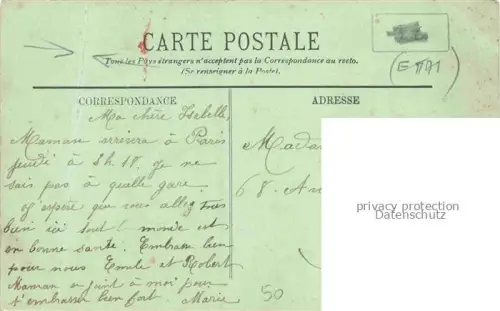 CARTE POSTALE
Tous les Pays étrangers n'acceptent pas la Correspondance au recto.
(Se renseigner à la Poste).
CORRESPONDANCE
ADRESSE
Ma chère Isabelle,
Maman arrivera à Paris
jeudi à 5h.18. Je ne
sais pas à quelle gare.
J'espère que vous allez tous
bien ici tout l' monde est
en bonne santé. Embrasse bien
pour nous Emile et Robert
Maman se joint à moi pour
t'embrasser bien fort Marie
Madam
68. Av
50
privacy protection
Datenschutz